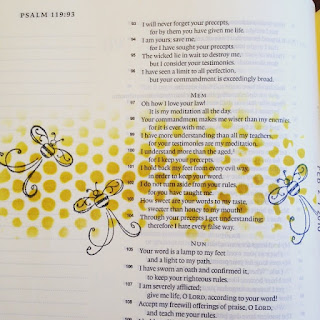 PSALM 119:93
93 I will never forget your precepts,
for by them you have given me life.
94 I am yours; save me,
for I have sought your precepts.
95 The wicked lie in wait to destroy me,
but I consider your testimonies.
96 I have seen a limit to all perfection,
but your commandment is exceedingly broad.
MEM
97 Oh how I love your law!
It is my meditation all the day.
98 Your commandment makes me wiser than my enemies,
for it is ever with me.
99 I have more understanding than all my teachers,
for your testimonies are my meditation.
100 I understand more than the aged,
for I keep your precepts.
101 I hold back my feet from every evil way,
in order to keep your word.
102 I do not turn aside from your rules,
for you have taught me.
103 How sweet are your words to my taste,
sweeter than honey to my mouth!
104 Through your precepts I get understanding;
therefore I hate every false way.
NUN
105 Your word is a lamp to my feet
and a light to my path.
106 I have sworn an oath and confirmed it,
to keep your righteous rules.
107 I am severely afflicted;
give me life, O LORD, according to your word!
108 Accept my freewill offerings of praise, O LORD,
and teach me your rules.